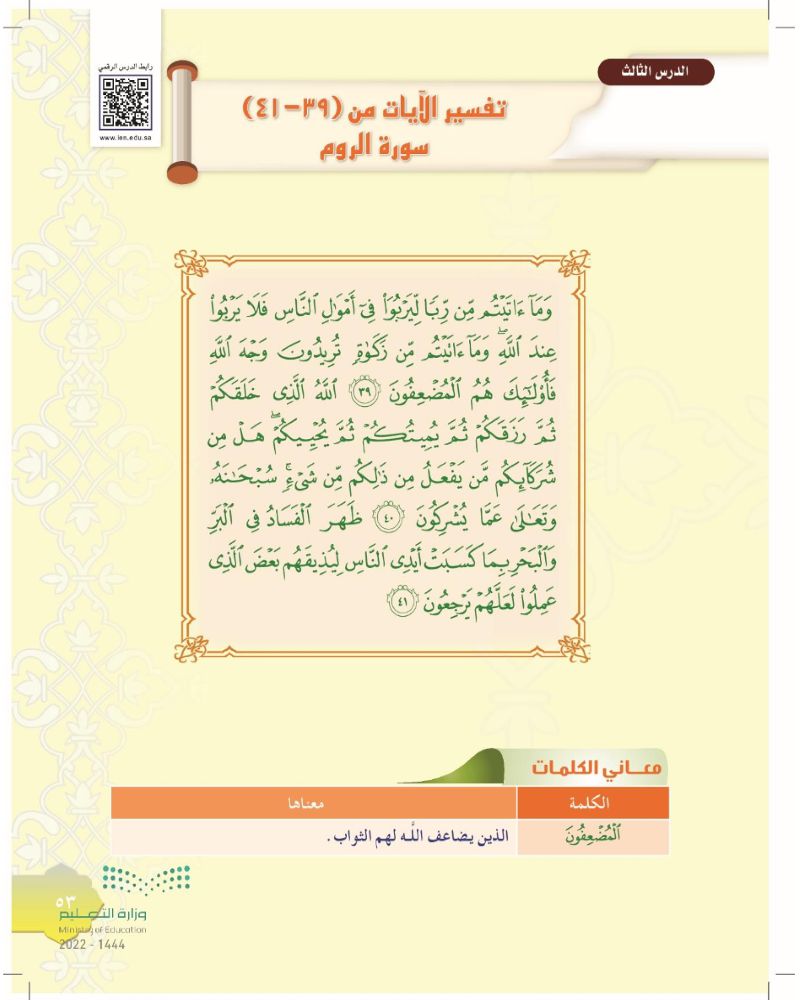 رابط الدرس الرقمي
www.ien.edu.sa
الدرس الثالث
تفسير الآيات من (٣٩-٤١)
سورة الروم
وَمَآ ءَاتَيۡتُم مِّن رِّبٗا لِّيَرۡبُوَاْ فِيٓ أَمۡوَٰلِ ٱلنَّاسِ فَلَا يَرۡبُواْ
عِندَ ٱللَّهِۖ وَمَآ ءَاتَيۡتُم مِّن زَكَوٰةٖ تُرِيدُونَ وَجۡهَ ٱللَّهِ
فَأُوْلَٰٓئِكَ هُمُ ٱلۡمُضۡعِفُونَ ٣٩ ٱللَّهُ ٱلَّذِي خَلَقَكُمۡ
ثُمَّ رَزَقَكُمۡ ثُمَّ يُمِيتُكُمۡ ثُمَّ يُحۡيِيكُمۡۖ هَلۡ مِن
شُرَكَآئِكُم مَّن يَفۡعَلُ مِن ذَٰلِكُم مِّن شَيۡءٖۚ سُبۡحَٰنَهُۥ
وَتَعَٰلَىٰ عَمَّا يُشۡرِكُونَ ٤٠ ظَهَرَ ٱلۡفَسَادُ فِي ٱلۡبَرِّ
وَٱلۡبَحۡرِ بِمَا كَسَبَتۡ أَيۡدِي ٱلنَّاسِ لِيُذِيقَهُم بَعۡضَ ٱلَّذِي
عَمِلُواْ لَعَلَّهُمۡ يَرۡجِعُونَ ٤١
معـــاني الكلمات
الكلمة معناها
ٱلۡمُضۡعِفُونَ الذين يضاعف اللَّه لهم الثواب .
٥٣
وزارة التعـــليم
Ministry of Education
2022 - 1444